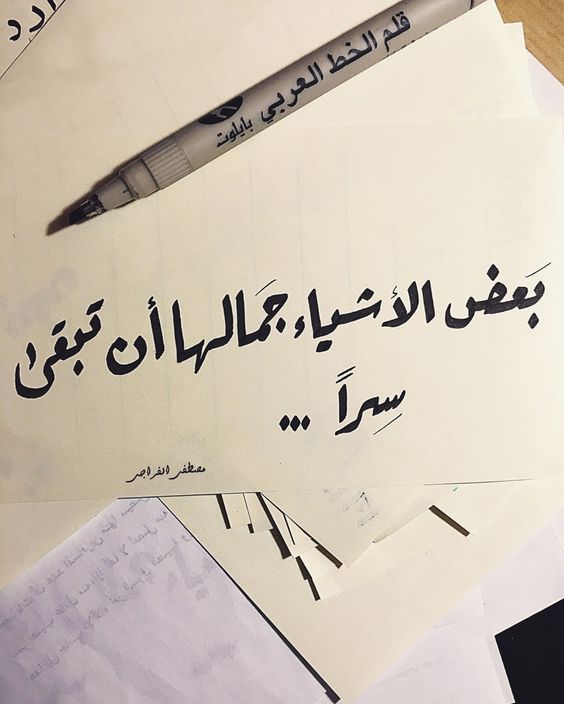 قلم الخط العربي بايلوت
بَعض الأشياء جمَالها أن تبقىٰ
سِراً ...
مصطفى الفراجي